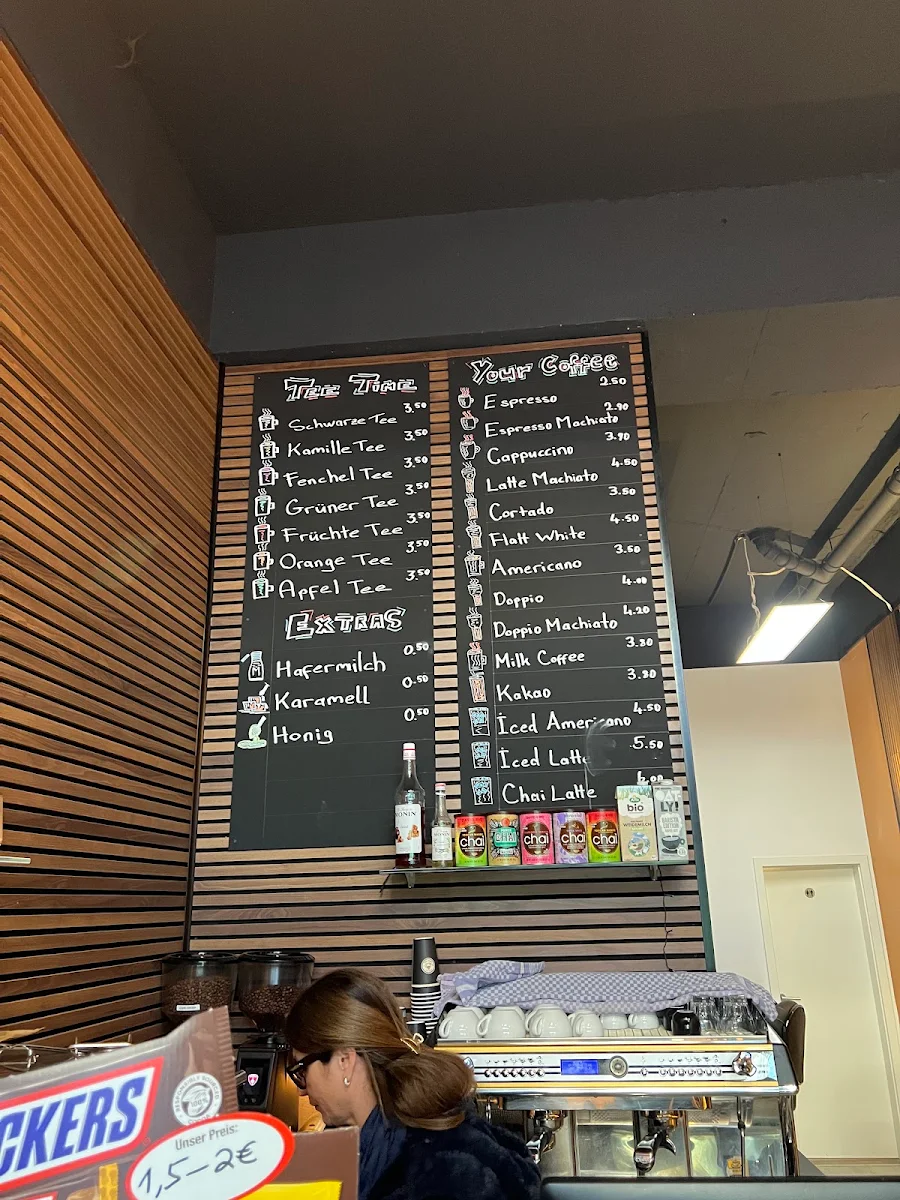 Tee Time
Schwarze Tee 3.50
Kamille Tee 3.50
Fenchel Tee 3.50
Grüner Tee 3.50
Früchte Tee 3.50
Orange Tee 3.50
Apfel Tee 3.50
Extras
Hafermilch 0.50
Karamell 0.50
Honig 0.50
Your Coffee
Espresso 2.50
Espresso Machiato 2.90
Cappuccino 3.90
Latte Machiato 4.50
Cortado 3.50
Flatt White 4.50
Americano 3.50
Doppio 4.00
Doppio Machiato 4.20
Milk Coffee 3.30
Kakao 3.80
İced Americano 4.50
İced Latte 5.50
Chai Latte
MONIN
chai
CHAI
chai
chai
chai
bio
LY!
CKERS
Unser Preis:
1,5–2€